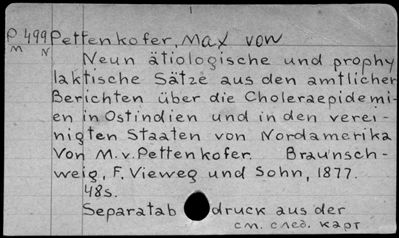 P 499 Pettenkofer, Max von
M N
Neun ätiologische und prophy
laktische Sätze aus den amtlichen
Berichten über die Choleraepidemi-
en in Ostindien und in den verei-
nigten Staaten von Nordamerika
Von M. v. Pettenkofer. Braunsch-
weig, F. Vieweg und Sohn, 1877.
48s.
Separatab druck aus der
см. след. карт